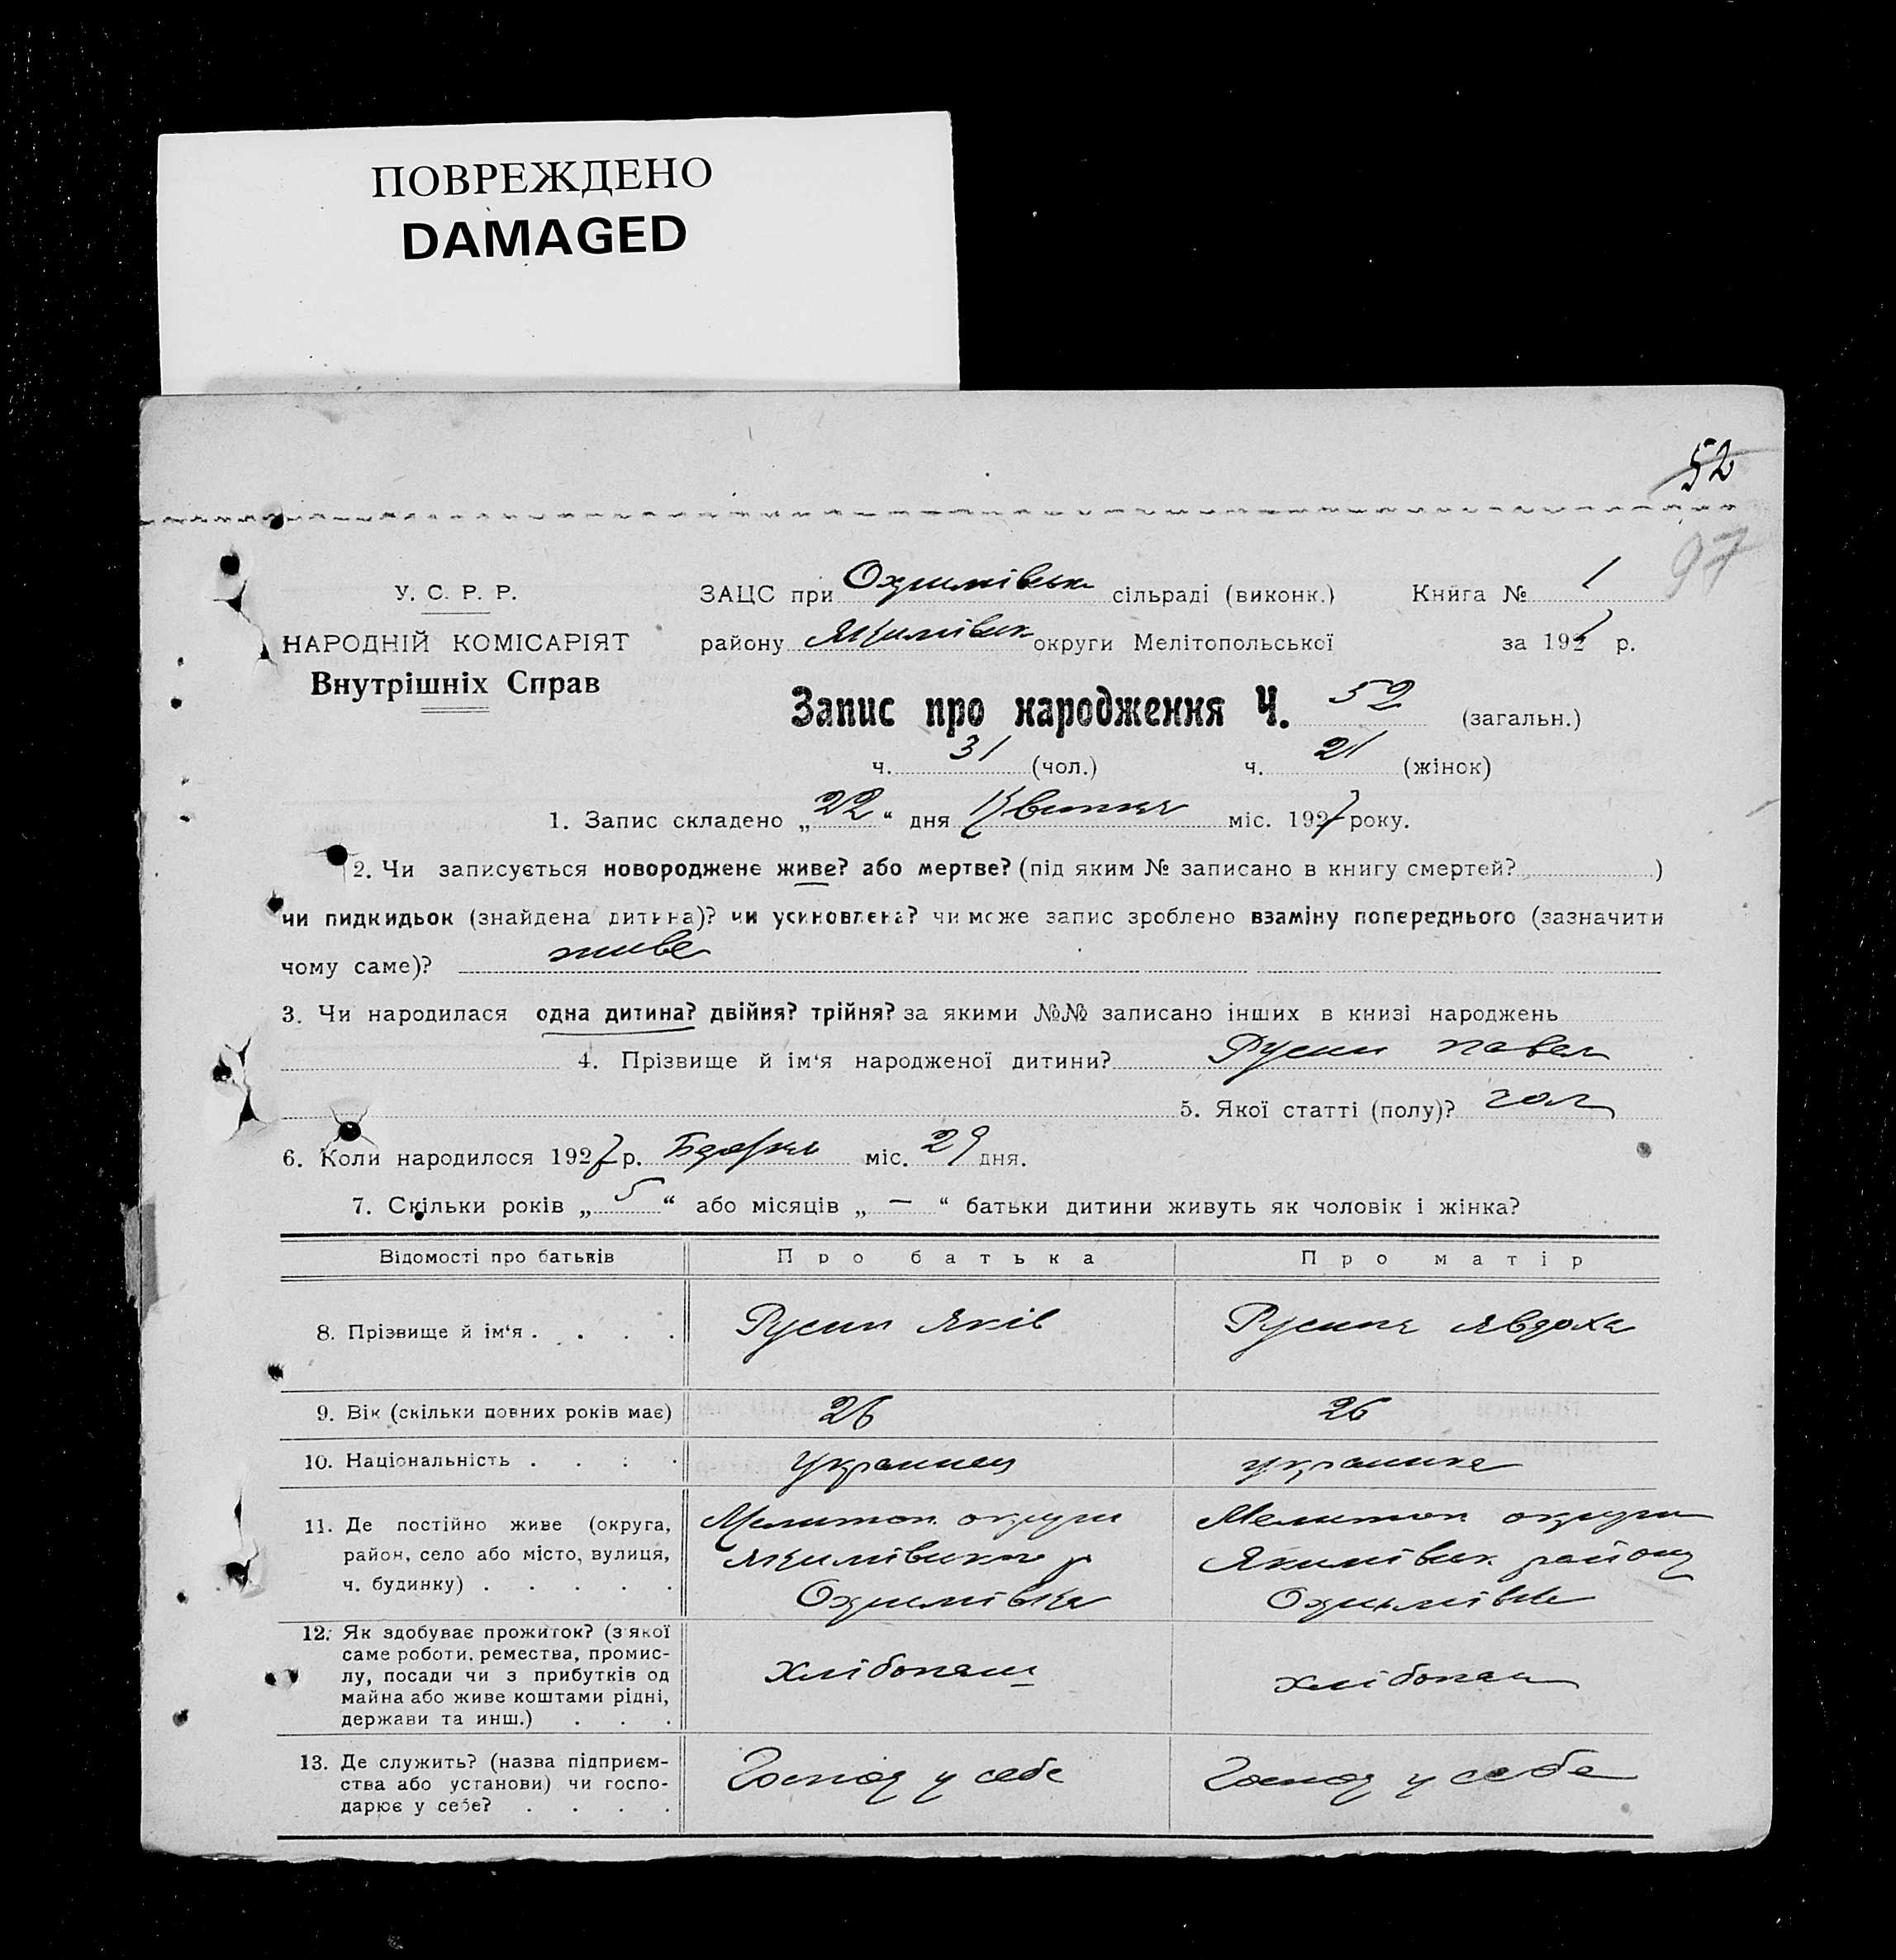 ПОВРЕЖДЕНО
DAMAGED
52
97
У. С. Р. Р.
НАРОДНІЙ КОМІСАРІЯТ
Внутрішніх Справ
ЗАЦС при Охримівськ сільраді (виконк.) Книга № 1
району Якимівськ округи Мелітопольської за 1927 р.
Запис про народження Ч. 52 (загальн.)
ч. 31 (чол.) ч. 21 (жінок)
1. Запис складено „22“ дня Квитня міс. 1927 року.
2. Чи записується новороджене живе? або мертве? (під яким № записано в книгу смертей? )
чи пидкидьок (знайдена дитина)? чи усиновлена? чи може запис зроблено взаміну попереднього (зазначити
чому саме)? живе
3. Чи народилася одна дитина? двійня? трійня? за якими №№ записано інших в книзі народжень
4. Прізвище й ім‘я народженої дитини? Русин Павел
5. Якої статті (полу)? чол
6. Коли народилося 1927 р. міс. 29 дня.
7. Скільки років „5“ або місяців „—“ батьки дитини живуть як чоловік і жінка?
Відомості про батьків Про батька Про матір
8. Прізвище й ім‘я . . . . Русин Яків Русина Явдоха
9. Вік (скільки повних років має) 26 26
10. Національність . . . . украинец украинка
11. Де постійно живе (округа, Мелитоп. округи Мелитоп округи
район, село або місто, вулиця, Якимівського р Якимівск. району
ч. будинку) . . . . . Охримівка Охримівка
12. Як здобуває прожиток? (з якої
саме роботи, ремества, промис-
лу, посади чи з прибутків од Хлібопаш хлібопаш
майна або живе коштами рідні,
держави та инш.) . . .
13. Де служить? (назва підприєм-
ства або установи) чи госпо- Господ у себе Господ у себе
дарює у себе? . . . .